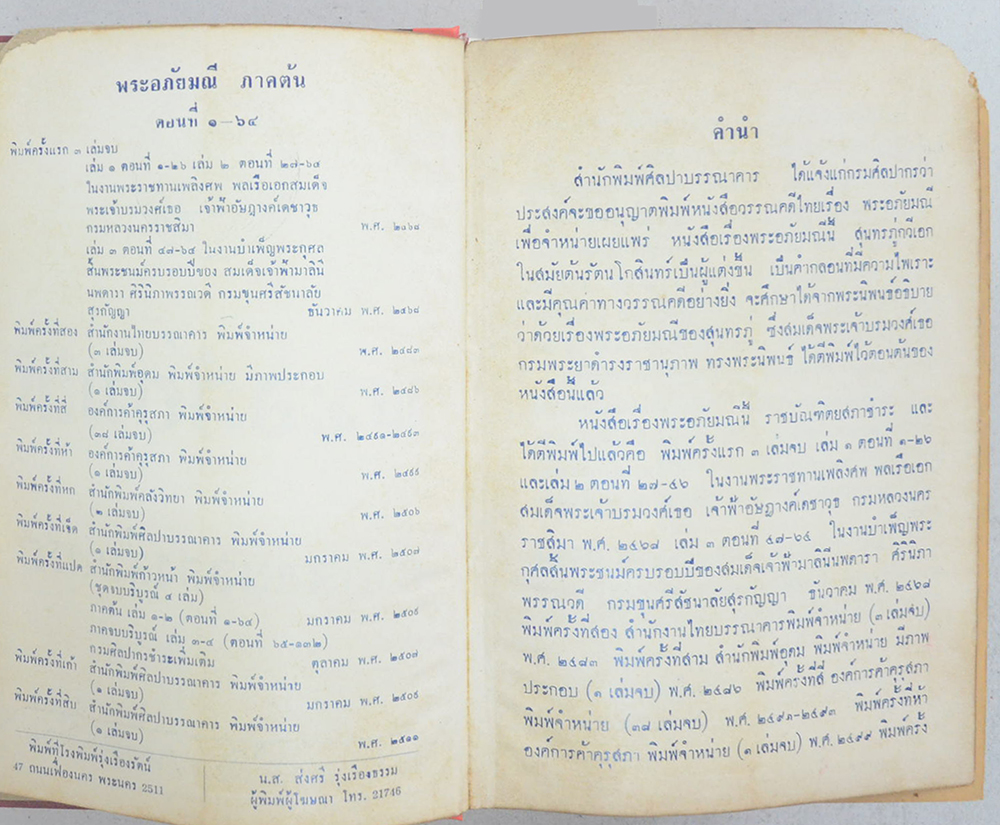 พระอภัยมณี ภาคต้น
ตอนที่ ๑—๖๔
พิมพ์ครั้งแรก ๓ เล่มจบ
เล่ม ๑ ตอนที่ ๑-๒๖ เล่ม ๒ ตอนที่
ในงานพระราชทานเพลิงศพ พลเรือเอกสมเด็จ
พระเจ้าบรมวงศ์เธอ เจ้าฟ้าอัษฎางค์เดชาวุธ
กรมหลวงนครราชสิมา พ.ศ. ๒๔๖๘
เล่ม ๓ ตอนที่ ๔๗-๖๔ ในงานบำเพ็ญพระกุศล
สิ้นพระชนม์ครบรอบปีของ สมเด็จเจ้าฟ้ามาลินี
นพดารา ศิรินิภาพรรณวดี กรมขุนศรีสัชนาลัย
สุรกัญญา ธันวาคม พ.ศ. ๒๔๖๘
พิมพ์ครั้งที่สอง สำนักงานไทยบรรณาคาร พิมพ์จำหน่าย
(๓ เล่มจบ) พ.ศ. ๒๔๘๓
พิมพ์ครั้งที่สาม สำนักพิมพ์อุดม พิมพ์จำหน่าย มีภาพประกอบ
(๑ เล่มจบ) พ.ศ. ๒๔๘๖
พิมพ์ครั้งที่สี่ องค์การค้าคุรุสภา พิมพ์จำหน่าย
(๓๘ เล่มจบ) พ.ศ. ๒๔๙๑-๒๔๙๓
พิมพ์ครั้งที่ห้า องค์การค้าคุรุสภา พิมพ์จำหน่าย
(๑ เล่มจบ) พ.ศ. ๒๔๙๙
พิมพ์ครั้งที่หก สำนักพิมพ์คลังวิทยา พิมพ์จำหน่าย
(๒ เล่มจบ) พ.ศ. ๒๕๐๖
พิมพ์ครั้งที่เจ็ด สำนักพิมพ์ศิลปาบรรณาคาร พิมพ์จำหน่าย
(๑ เล่มจบ) มกราคม พ.ศ. ๒๕๐๗
พิมพ์ครั้งที่แปด สำนักพิมพ์ก้าวหน้า พิมพ์จำหน่าย
(ชุดจบบริบูรณ์ ๔ เล่ม)
ภาคต้น เล่ม ๑-๒ (ตอนที่ ๑-๖๔) มกราคม พ.ศ.
ภาคจบบริบูรณ์ เล่ม ๓-๔ (ตอนที่ ๖๕-๑๓๒)
กรมศิลปากรชำระเพิ่มเติม ตุลาคม พ.ศ. ๒๕๐๗
พิมพ์ครั้งที่เก้า สำนักพิมพ์ศิลปาบรรณาคาร พิมพ์จำหน่าย
(๑ เล่มจบ) มกราคม พ.ศ. ๒๕๐๙
พิมพ์ครั้งที่สิบ สำนักพิมพ์ศิลปาบรรณาคาร พิมพ์จำหน่าย
(๑ เล่มจบ) พ.ศ. ๒๕๑๑
พิมพ์ที่โรงพิมพ์รุ่งเรืองรัตน์
47 ถนนเฟื่องนคร พระนคร 2511
น.ส. ส่งศรี รุ่งเรืองธรรม
ผู้พิมพ์ผู้โฆษณา โทร. 21746
คำนำ
สำนักพิมพ์ศิลปาบรรณาคาร ได้แจ้งแก่กรมศิลปากรว่า
ประสงค์จะขออนุญาตพิมพ์หนังสือวรรณคดีไทยเรื่อง พระอภัยมณี
เพื่อจำหน่ายเผยแพร่ หนังสือเรื่องพระอภัยมณีนี้ สุนทรภู่กวีเอก
ในสมัยต้นรัตนโกสินทร์เป็นผู้แต่งขึ้น เป็นคำกลอนที่มีความไพเราะ
และมีคุณค่าทางวรรณคดีอย่างยิ่ง จะศึกษาได้จากพระนิพนธ์อธิบาย
ว่าด้วยเรื่องพระอภัยมณีของสุนทรภู่ ซึ่งสมเด็จพระเจ้าบรมวงศ์เธอ
กรมพระยาดำรงราชานุภาพ ทรงพระนิพนธ์ ได้ตีพิมพ์ไว้ตอนต้นของ
หนังสือนี้แล้ว
หนังสือเรื่องพระอภัยมณีนี้ ราชบัณฑิตยสภาชำระ และ
ได้ตีพิมพ์ไปแล้วคือ พิมพ์ครั้งแรก ๓ เล่มจบ เล่ม ๑ ตอนที่ ๑-๒๖
และเล่ม ๒ ตอนที่ ๒๗-๔๖ ในงานพระราชทานเพลิงศพ พลเรือเอก
สมเด็จพระเจ้าบรมวงศ์เธอ เจ้าฟ้าอัษฎางค์เดชาวุธ กรมหลวงนคร
ราชสิมา พ.ศ. ๒๔๖๘ เล่ม ๓ ตอนที่ ๔๗-๖๔ ในงานบำเพ็ญพระ
กุศลสิ้นพระชนม์ครบรอบปีของสมเด็จเจ้าฟ้ามาลินีนพดารา ศิรินิภา
พรรณวดี กรมขุนศรีสัชนาลัยสุรกัญญา ธันวาคม พ.ศ. ๒๔๖๘
พิมพ์ครั้งที่สอง สำนักงานไทยบรรณาคารพิมพ์จำหน่าย (๓ เล่มจบ)
พ.ศ. ๒๔๘๓ พิมพ์ครั้งที่สาม สำนักพิมพ์อุดม พิมพ์จำหน่าย มีภาพ
ประกอบ (๑ เล่มจบ) พ.ศ. ๒๔๘๖ พิมพ์ครั้งที่สี่ องค์การค้าคุรุสภา
พิมพ์จำหน่าย (๓๘ เล่มจบ) พ.ศ. ๒๔๙๑-๒๔๙๓ พิมพ์ครั้งที่ห้า
องค์การค้าคุรุสภา พิมพ์จำหน่าย (๑ เล่มจบ) พ.ศ. ๒๔๙๙ พิมพ์ครั้ง